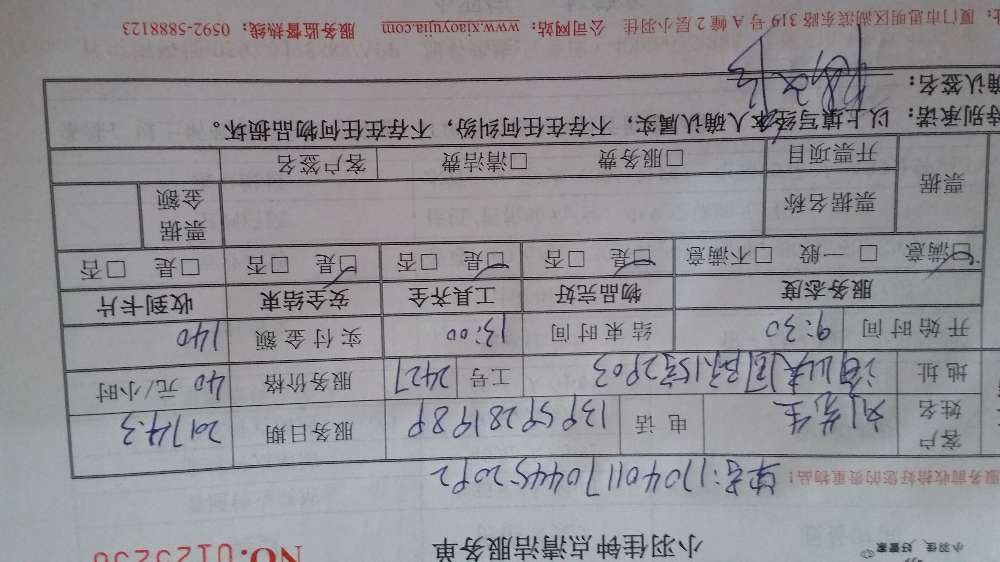 小羽佳 好管家
小羽佳钟点清洁服务单 NO.0125256
服务前收拾好您的贵重物品! 单号:1704011704452092
客户姓名 刘先生 电话 服务日期 2017.4.3
地址 工号 2427 服务价格 40 元/小时
开始时间 9:30 结束时间 13:00 实付金额 140
服务态度 物品完好 工具齐全 安全结束 收到卡片
☑满意 □一般 □不满意 ☑是 □否 ☑是 □否 ☑是 □否 □是 □否
票据 票据名称 票据金额
开票项目 □服务费 □清洁费 客户签名
特别承诺: 以上填写经本人确认属实,不存在任何纠纷,不存在任何物品损坏。
确认签名:
厦门市思明区湖滨东路 319 号 A 幢 2 层小羽佳 公司网站: www.xiaoyujia.com 服务监督热线: 0592-5888123